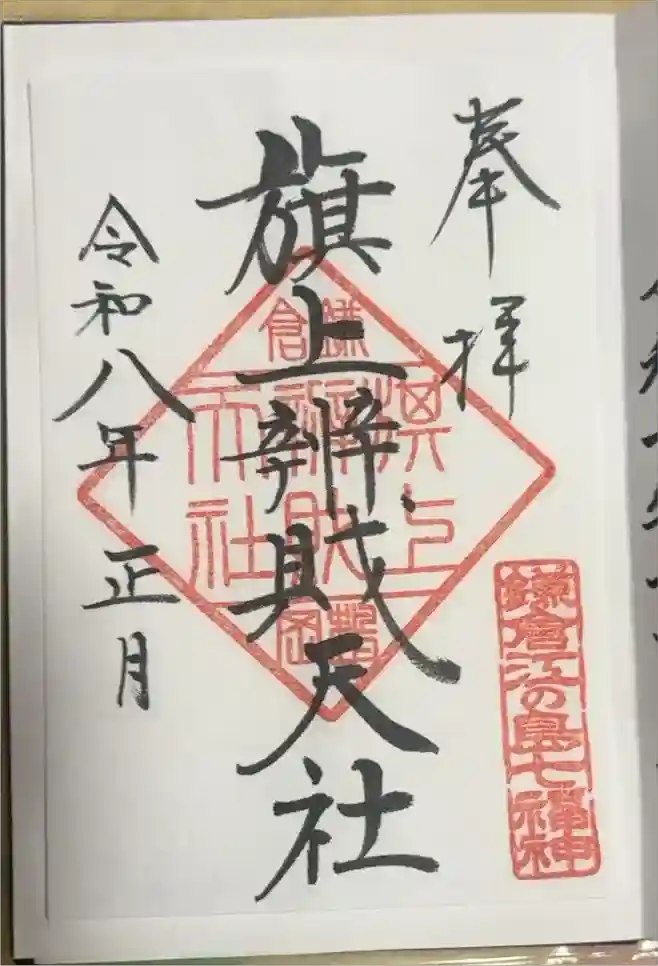 奉拝
旗上辨賎天社
令和八年正月
鎌倉
旗上
辨財
天社
鎌倉江の島七福神